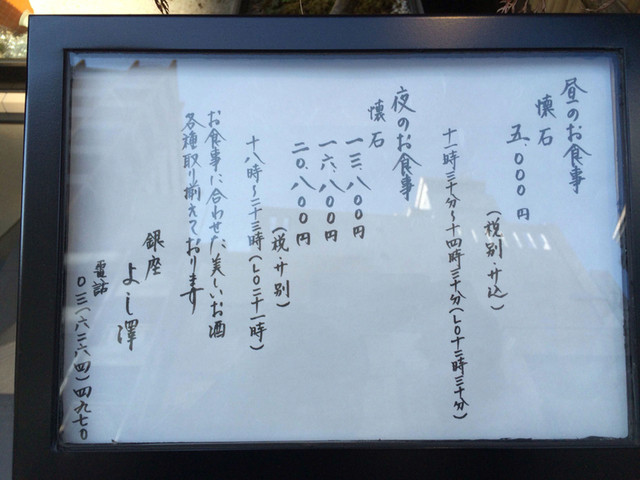 昼のお食事
懐石
五.〇〇〇円
(税別・サ込)
十一時三十分〜十四時三十分(LO十三時三十分)
夜のお食事
懐石
一三.八〇〇円
一六.八〇〇円
二〇.八〇〇円
(税・サ別)
十八時〜二十三時(LO二十一時)
お食事に合わせた美しいお酒
各種取り揃えております
銀座
よし澤
電話
〇三(六二六四)四九七〇